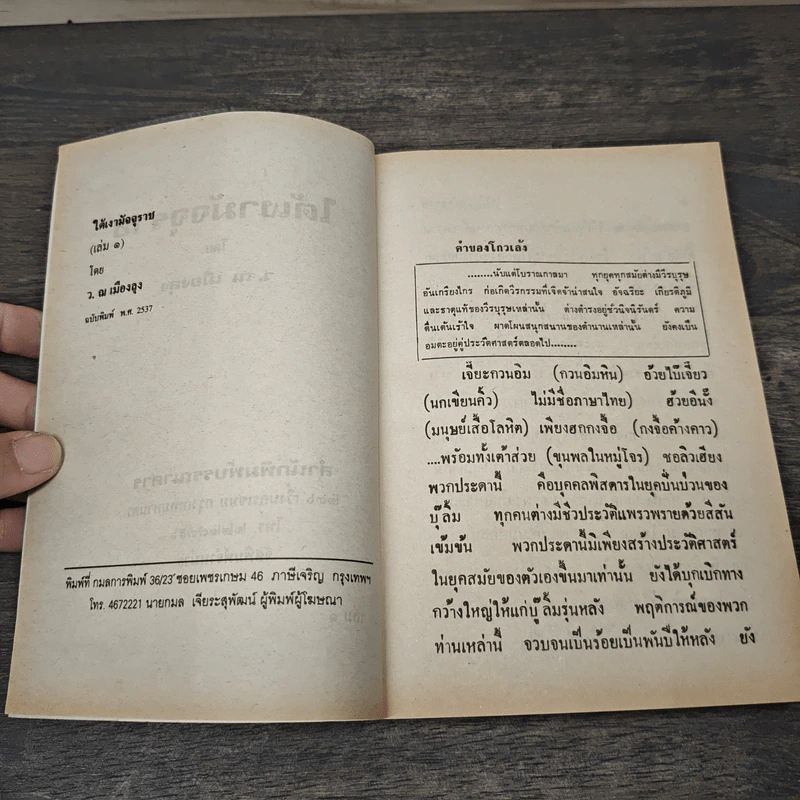 ใต้เงามัจจุราช
(เล่ม ๑)
โดย
ว. ณ เมืองลุง
ฉบับพิมพ์ พ.ศ. 2537
พิมพ์ที่ กมลการพิมพ์ 36/23 ซอยเพชรเกษม 46 ภาษีเจริญ กรุงเทพฯ
โทร. 4672221 นายกมล เจียระสุพัฒน์ ผู้พิมพ์ผู้โฆษณา
คำของโกวเล้ง
........นับแต่โบราณกาลมา ทุกยุคทุกสมัยต่างมีวีรบุรุษ
อันเกรียงไกร ก่อเกิดวีรกรรมที่เจิดจ้าน่าสนใจ อัจฉริยะ เกียรติภูมิ
และธาตุแท้ของวีรบุรุษเหล่านั้น ต่างดำรงอยู่ชั่วนิจนิรันดร์ ความ
ตื่นเต้นเร้าใจ ผาดโผนสนุกสนานของตำนานเหล่านั้น ยังคงเป็น
อมตะอยู่คู่ประวัติศาสตร์ตลอดไป........
เจี๊ยะกวนอิม (กวนอิมหิน) อ้วยไบ๊เจี๊ยว
(นกเขียนคิ้ว) ไม่มีชื่อภาษาไทย) ฮ้วยอินั้ง
(มนุษย์เสื้อโลหิต) เพียงฮกกงจื้อ (กงจื้อค้างคาว)
....พร้อมทั้งเต้าส่วย (ขุนพลในหมู่โจร) ชอลิวเฮียง
พวกประดานี้ คือบุคคลพิสดารในยุคปั่นป่วนของ
บู๊ลิ้ม ทุกคนต่างมีชีวประวัติแพรวพรายด้วยสีสัน
เข้มข้น พวกประดานี้มิเพียงสร้างประวัติศาสตร์
ในยุคสมัยของตัวเองขึ้นมาเท่านั้น ยังได้บุกเบิกทาง
กว้างใหญ่ให้แก่บู๊ลิ้มรุ่นหลัง พฤติการณ์ของพวก
ท่านเหล่านี้ จวบจนเป็นร้อยเป็นพันปีให้หลัง ยัง